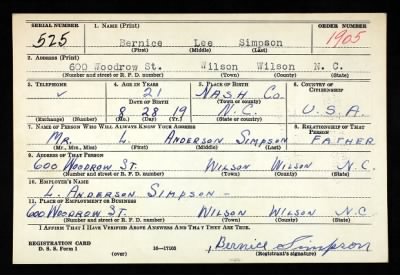 SERIAL NUMBER 1. NAME (Print) ORDER NUMBER
525 Bernice Lee Simpson 1905
(First) (Middle) (Last)
2. ADDRESS (Print)
600 Woodrow St. Wilson Wilson N. C.
(Number and street or R. F. D. number) (Town) (County) (State)
3. TELEPHONE 4. AGE IN YEARS 5. PLACE OF BIRTH 6. COUNTRY OF CITIZENSHIP
✓ 21 NASH CO.
DATE OF BIRTH (Town or county)
8 28 19 N.C. U.S.A.
(Exchange) (Number) (Mo.) (Day) (Yr.) (State or country)
7. NAME OF PERSON WHO WILL ALWAYS KNOW YOUR ADDRESS 8. RELATIONSHIP OF THAT PERSON
MR. L. ANDERSON SIMPSON FATHER
(Mr., Mrs., Miss) (First) (Middle) (Last)
9. ADDRESS OF THAT PERSON
600 WOODROW ST. WILSON WILSON N.C.
(Number and street or R. F. D. number) (Town) (County) (State)
10. EMPLOYER'S NAME
L. ANDERSON SIMPSON -
11. PLACE OF EMPLOYMENT OR BUSINESS
600 WOODROW ST. WILSON WILSON N.C
(Number and street or R. F. D. number) (Town) (County) (State)
I AFFIRM THAT I HAVE VERIFIED ABOVE ANSWERS AND THAT THEY ARE TRUE.
REGISTRATION CARD
D. S. S. Form 1 16—17105 Bernice Simpson
(over) (Registrant's signature)